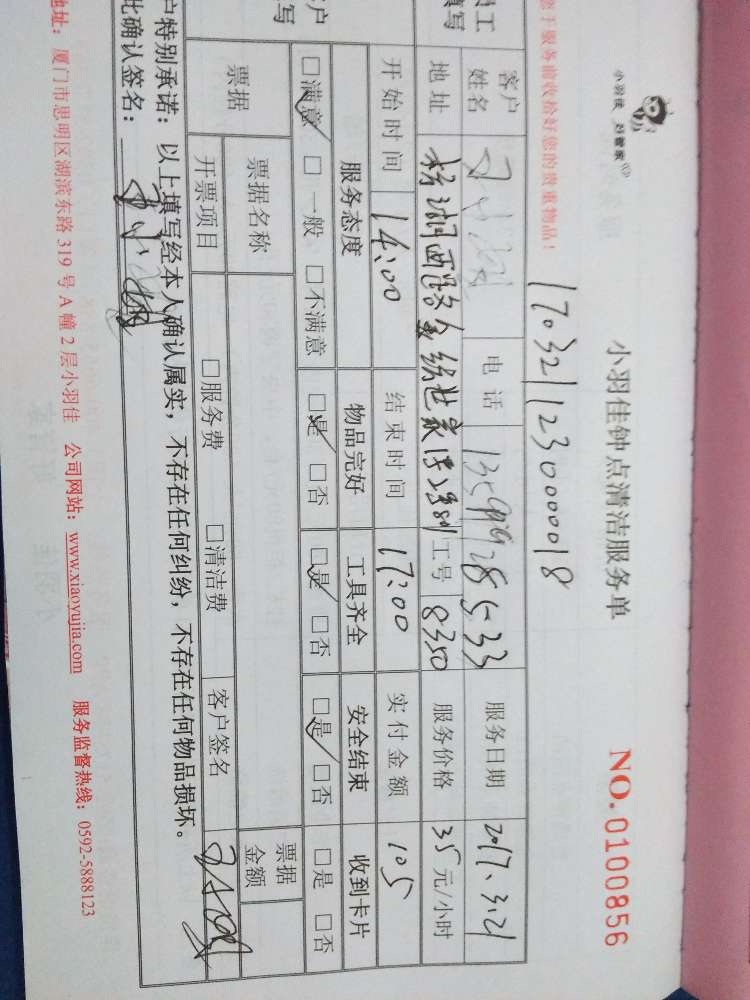 小羽佳 好管家
小羽佳钟点清洁服务单
NO.0100856
17032112300018
您于服务前收拾好您的贵重物品！
员工
填写
客户
姓名
电话
服务日期 2017.3.21
地址
工号 8350
服务价格 35元/小时
开始时间 14:00
结束时间 17:00
实付金额 105
客户
写
服务态度 物品完好 工具齐全 安全结束 收到卡片
☑满意 □一般 □不满意 ☑是 □否 ☑是 □否 ☑是 □否 □是 □否
票据
票据名称
票据
金额
开票项目 □服务费 □清洁费 客户签名
户特别承诺：以上填写经本人确认属实，不存在任何纠纷，不存在任何物品损坏。
此确认签名：
地址：厦门市思明区湖滨东路319号A幢2层小羽佳 公司网站：www.xiaoyujia.com 服务监督热线：0592-5888123